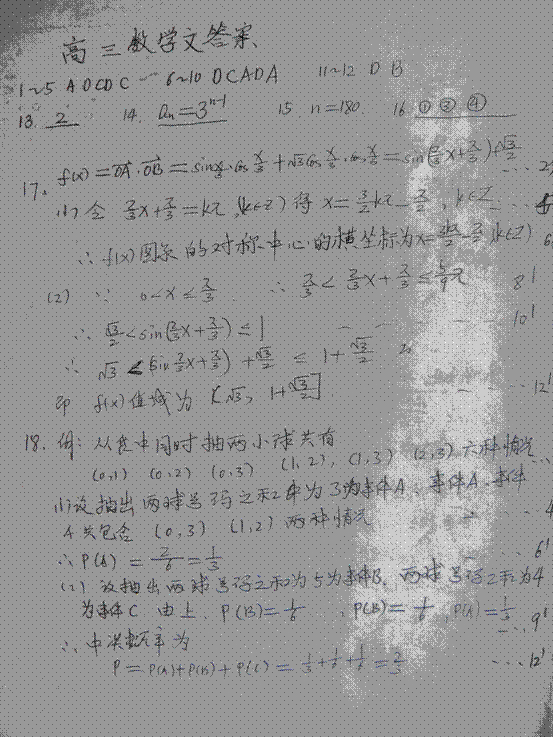 高三数学文答案
1~5 ADCDC 6~10 DCADA 11~12 D B
13. 2 14. aₙ=3ⁿ⁻¹ 15 n=180 16 ①③④
17. f(x)=OA·OB=sin x/3·cos x/3+√3cos x/3·cos x/3=sin(2/3x+π/3)+√3/2
(1) 令 2/3x+π/3=kπ (k∈Z) 得 x=3/2kπ-π/2, k∈Z
∴ f(x)图象的对称中心的横坐标为 k∈Z) 6
(2) ∵ 0<x≤π/3 ∴ π/3<2/3x+π/3≤5/9π 8'
∴ √3/2<sin(2/3x+π/3)≤1 10'
∴ √3<sin(2/3x+π/3)+√3/2≤1+√3/2
即 f(x)值域为 (√3, 1+√3/2] 12'
18. 解: 从盒中同时抽两小球共有
(0,1) (0,2) (0,3) (1,2), (1,3) (2,3) 六种情况
(1)设抽出两球号码之和为3为事件A, 事件A 事件
A共包含 (0,3) (1,2) 两种情况 4
∴ P(A)=2/6=1/3 6'
(2) 设抽出两球号码之和为5为事件B, 两球号码之和为4
为事件C 由上, P(B)=1/6, P(B)=1/6, P(A)=1/3 9'
∴ 中奖概率为
P=P(A)+P(B)+P(C)=1/3+1/6+1/6=2/3 12'